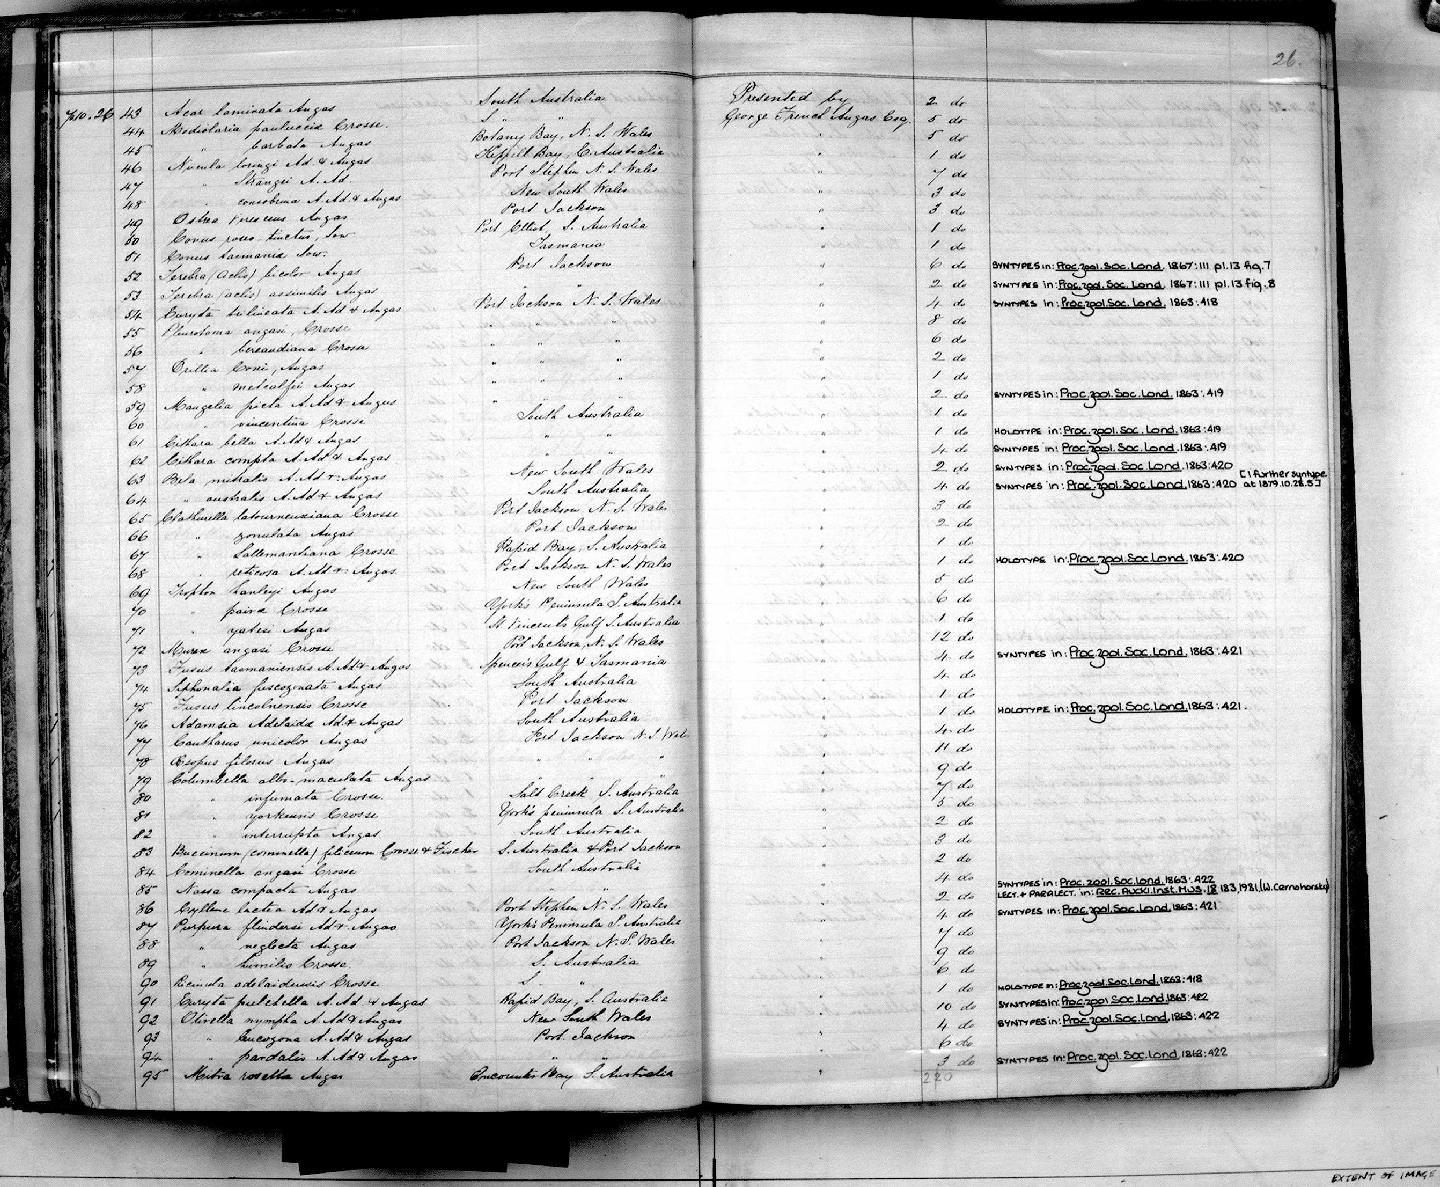 26.
South Australia Presented by
George French Angas Esq.
43 Acar laminata Angas 2 do
44 Modiolaria paulucciæ Crosse. S " 5 do
45 " barbata Angas Botany Bay, N. S. Wales " 5 do
46 Nucula loringi Ad. & Angas E. Australia " 1 do
47 " Strangei A. Ad. Port Stephen N. S. Wales " 7 do
48 " consobrina A. Ad. & Angas New South Wales " 3 do
49 Ostrea virescens Angas Port Jackson " 3 do
50 Conus roseo-tinctus, Sow Port Elliot, S. Australia " 1 do
51 Conus tasmaniæ Sow. Tasmania " 1 do
52 Terebra (Acus) bicolor Angas Port Jackson " 6 do SYNTYPES in: Proc. zool. Soc. Lond. 1867: 111 pl. 13 fig. 7
53 Terebra (Acus) assimilis Angas " " " 2 do SYNTYPES in: Proc. zool. Soc. Lond. 1867: 111 pl. 13 fig. 8
54 Euryta trilineata A. Ad & Angas Port Jackson N. S. Wales " 4 do SYNTYPES in: Proc. zool. Soc. Lond. 1863: 418
55 Pleurotoma angasi, Crosse " " " " 8 do
56 " beraudiana Crosse " " " " 6 do
57 Drillia Coxi, Angas " " " " 2 do
58 " metcalfei Angas " " " " 1 do
59 Mangelia picta A. Ad & Angas " " " " 2 do SYNTYPES in: Proc. zool. Soc. Lond. 1863: 419
60 " vincentina Crosse South Australia " 1 do
61 Cithara bella A. Ad & Angas " " " 1 do HOLOTYPE in: Proc. zool. Soc. Lond. 1863: 419
62 Cithara compta A. Ad. & Angas " 4 do SYNTYPES in: Proc. zool. Soc. Lond. 1863: 419
63 Bela mitralis A. Ad & Angas New South Wales " 2 do SYNTYPES in: Proc. zool. Soc. Lond. 1863: 420
64 " australis A. Ad & Angas South Australia " 4 do SYNTYPES in: Proc. zool. Soc. Lond. 1863: 420 [1 further syntype at 1879.10.28.5]
65 Clathurella letourneuxiana Crosse Port Jackson N. S. Wales " 3 do
66 " zonulata Angas Port Jackson " 2 do
67 " Lallemantiana Crosse Rapid Bay, S. Australia " 1 do
68 " reticosa A. Ad & Angas Port Jackson N. S. Wales " 1 do HOLOTYPE in: Proc. zool. Soc. Lond. 1863: 420
69 Trophon hanleyi Angas New South Wales " 5 do
70 " paivæ Crosse York's Peninsula S. Australia " 6 do
71 " Angas St Vincents Gulf S. Australia " 1 do
72 Murex angasi Crosse Port Jackson, N. S. Wales " 12 do
73 Fusus tasmaniensis A. Ad & Angas Spencer's Gulf & Tasmania " 4 do SYNTYPES in: Proc. zool. Soc. Lond. 1863: 421
74 Siphonalia fuscozonata Angas South Australia " 4 do
75 Fusus lincolnensis Crosse Port Jackson " 1 do
76 Adamsia Adelaidæ Ad & Angas South Australia " 1 do HOLOTYPE in: Proc. zool. Soc. Lond. 1863: 421.
77 Cantharus unicolor Angas Port Jackson N. S Wales " 4 do
78 Angas " " " " 11 do
79 Columbella albo-maculata Angas " " " 9 do
80 " infumata Crosse. Salt Creek S. Australia " 7 do
81 " yorkensis Crosse York's peninsula S. Australia " 5 do
82 " interrupta Angas South Australia " 2 do
83 Buccinum (cominella) filiceum Crosse & Fischer S. Australia & Port Jackson " 3 do
84 Cominella angasi Crosse South Australia " 2 do
85 Nassa compacta Angas " " " 4 do SYNTYPES in: Proc. zool. Soc. Lond. 1863: 422
LECT. & PARALECT. in: Rec. Auckl. Inst. Mus. 18 183, 1981, (W. Cernohorsky)
86 Cyllene lactea Ad & Angas Port Stephen N. S. Wales " 2 do
87 Purpura flindersi Ad & Angas York's Peninsula S. Australia " 4 do SYNTYPES in: Proc. zool. Soc. Lond. 1863: 421
88 " neglecta Angas Port Jackson N. S. Wales " 7 do
89 " humilis Crosse. S. Australia " 9 do
90 Ricinula adelaidensis Crosse S. " " 6 do
91 Euryta pulchella A. Ad & Angas Rapid Bay, S. Australia " 1 do HOLOTYPE in: Proc. zool. Soc. Lond. 1863: 418
92 Olivella nympha A. Ad & Angas New South Wales " 10 do SYNTYPES in: Proc. zool. Soc. Lond. 1863: 422
93 " leucozona A. Ad & Angas Port Jackson " 4 do SYNTYPES in: Proc. zool. Soc. Lond. 1863: 422
94 " pardalis A. Ad & Angas " " " 6 do
95 Mitra rosetta Angas Encounter Bay S. Australia " 3 do SYNTYPES in: Proc. zool. Soc. Lond. 1863: 422
220
EXTENT OF IMAGE